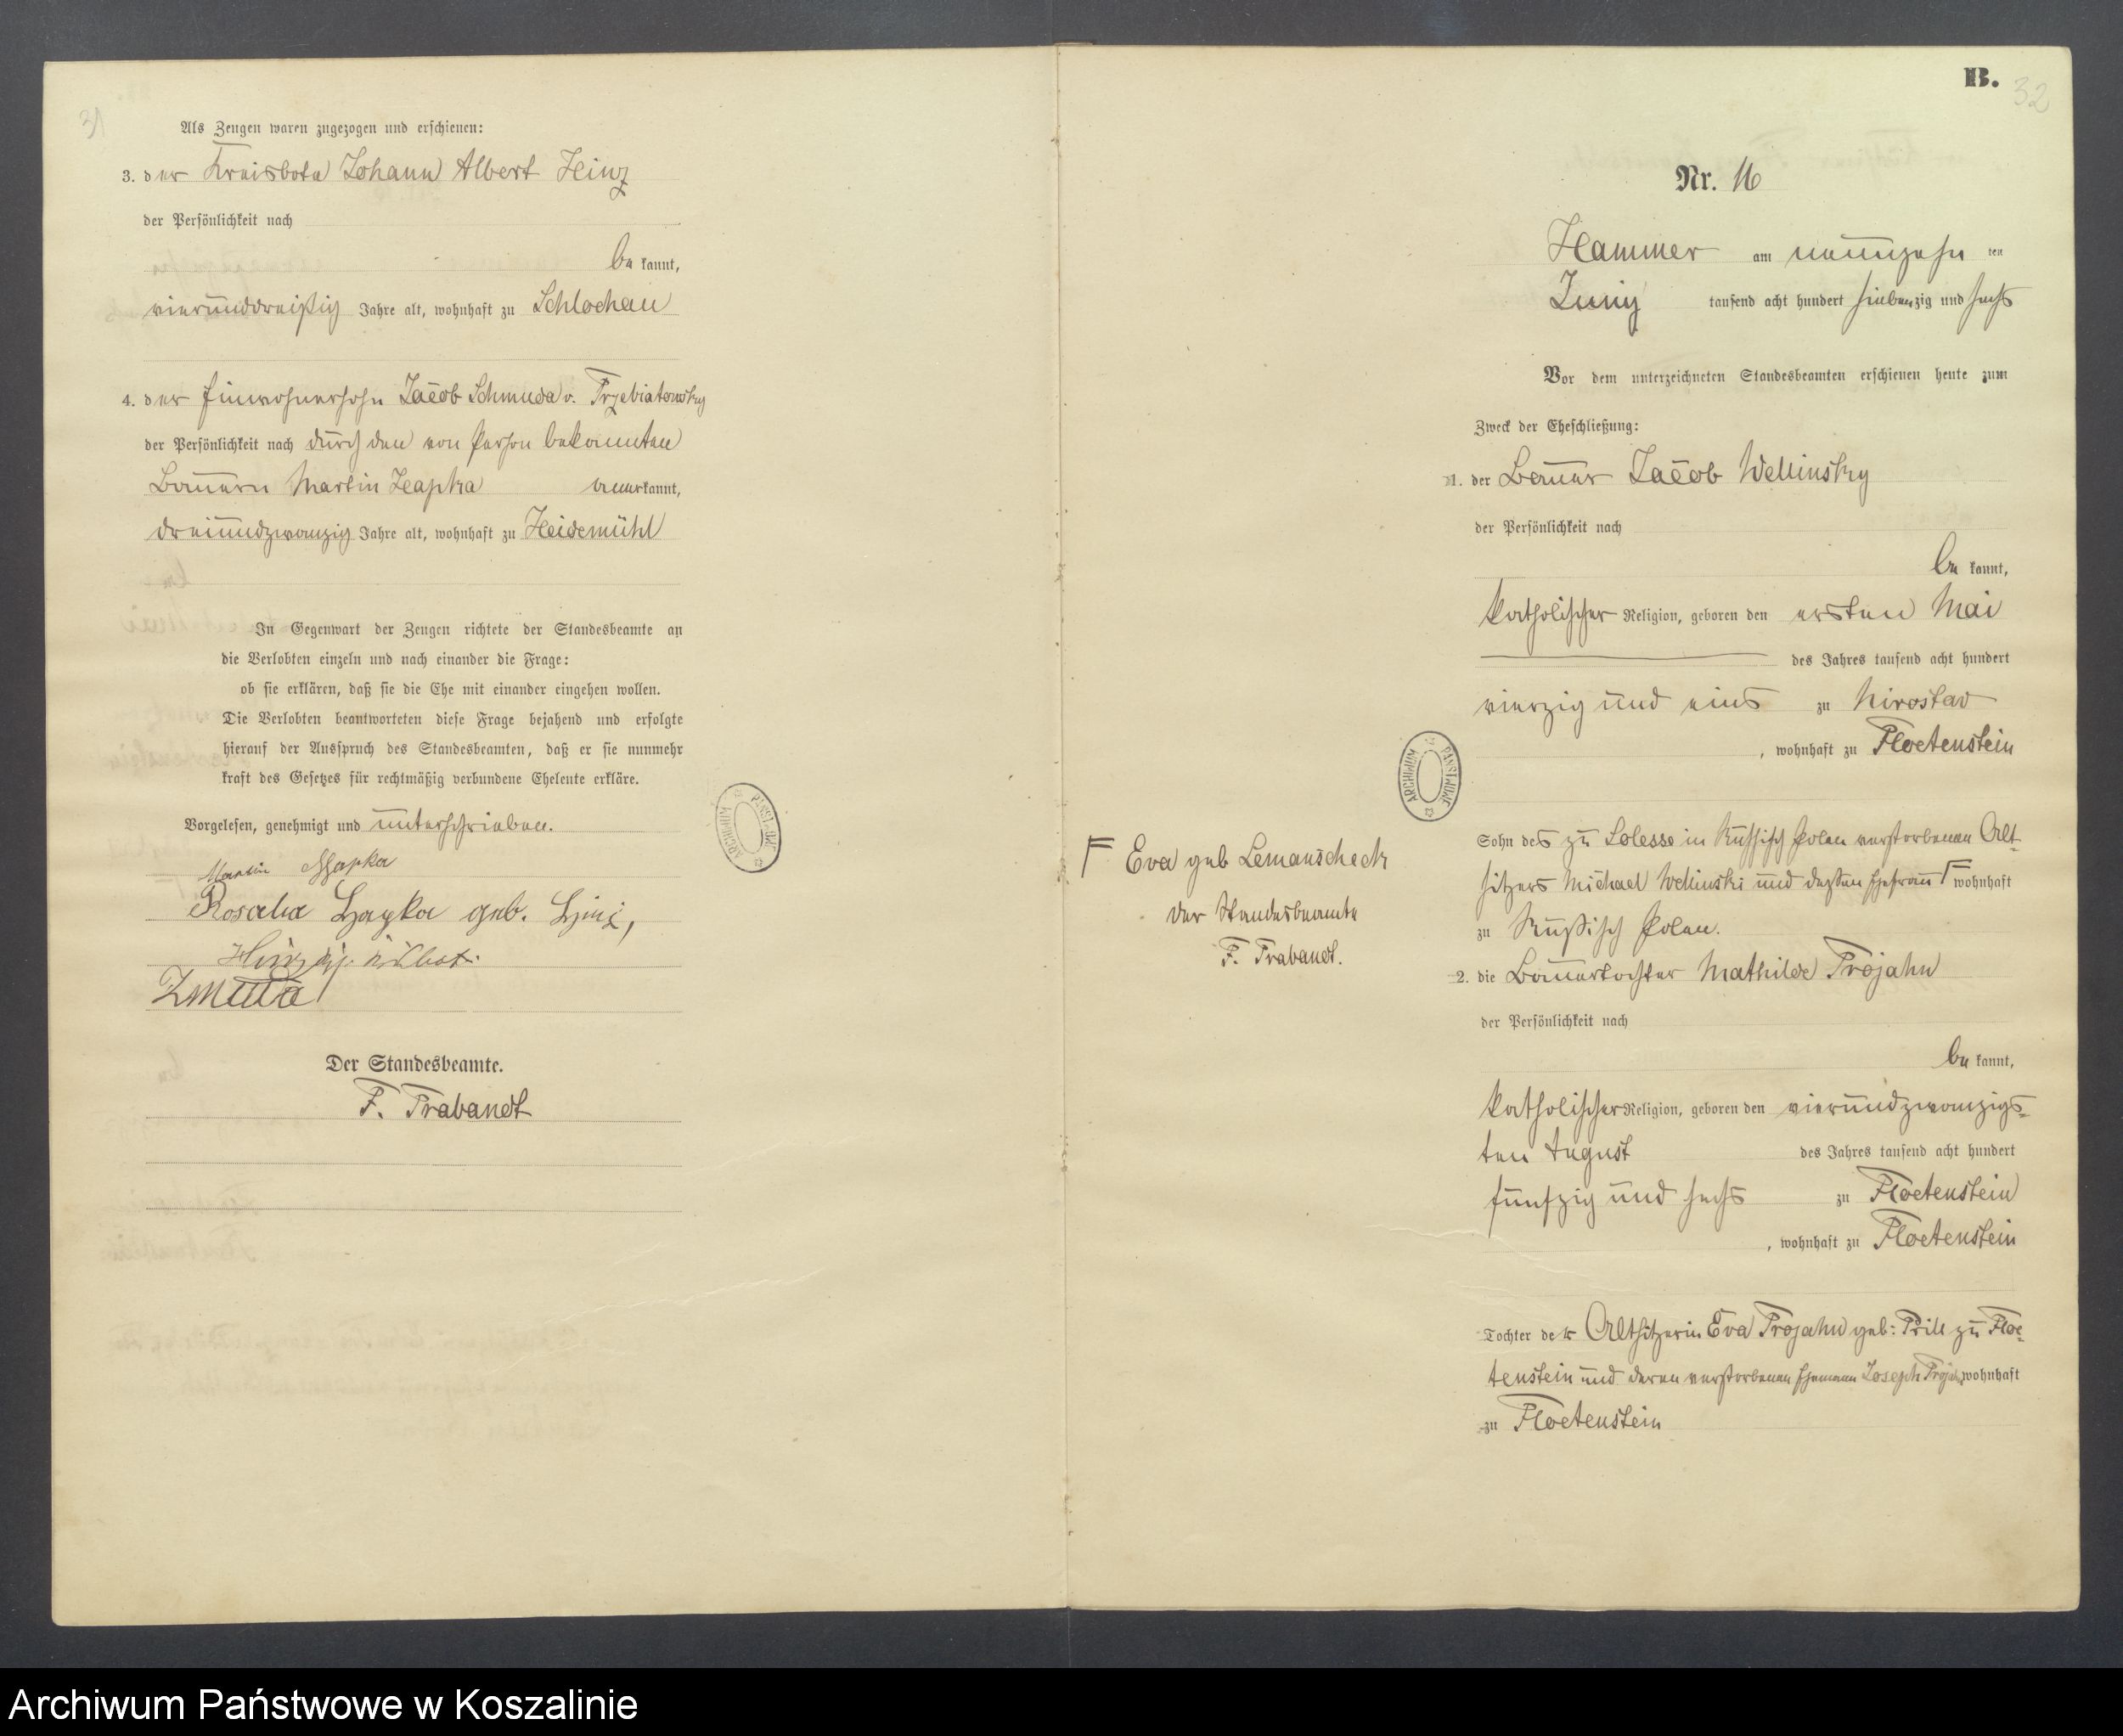 31
Als Zeugen waren zugezogen und erschienen:
3. der Kreisbote Johann Albert Heinz
der Persönlichkeit nach
be kannt,
vierunddreißig Jahre alt, wohnhaft zu Schlochau
4. der Einwohnersohn Jacob Schmuda v. Trzebiatowsky
der Persönlichkeit nach durch den von Person bekannten
Bauern Martin Czapka anerkannt,
dreiundzwanzig Jahre alt, wohnhaft zu Heidemühl
In Gegenwart der Zeugen richtete der Standesbeamte an
die Verlobten einzeln und nach einander die Frage:
ob sie erklären, daß sie die Ehe mit einander eingehen wollen.
Die Verlobten beantworteten diese Frage bejahend und erfolgte
hierauf der Ausspruch des Standesbeamten, daß er sie nunmehr
kraft des Gesetzes für rechtmäßig verbundene Eheleute erkläre.
Vorgelesen, genehmigt und unterschrieben.
Martin Czapka
Rosalia geb.
Der Standesbeamte.
F. Trabandt
ARCHIWUM PAŃSTWOWE
B.
32
Nr. 16
Hammer am neunzehn ten
Juny tausend acht hundert siebenzig und sechs
Vor dem unterzeichneten Standesbeamten erschienen heute zum
Zweck der Eheschließung:
1. der Bauer Jacob Wellinsky
der Persönlichkeit nach
be kannt,
katholischer Religion, geboren den ersten Mai
des Jahres tausend acht hundert
vierzig und eins zu
, wohnhaft zu Floetenstein
Sohn des zu Solesse in Russisch Polen verstorbenen Alt-
sitzers Michael Wellinski und dessen Ehefrau F wohnhaft
zu Rußisch Polen.
F Eva geb Lemanscheck
Der Standesbeamte
F. Trabandt.
2. die Bauertochter Mathilde Projahn
der Persönlichkeit nach
be kannt,
katholischer Religion, geboren den vierundzwanzigs-
ten August des Jahres tausend acht hundert
fünfzig und sechs zu Floetenstein
, wohnhaft zu Floetenstein
Tochter der Altsitzerin Eva Projahn geb: Prill zu Floe-
tenstein und deren verstorbenen Ehemann Joseph Projahn wohnhaft
zu Floetenstein
ARCHIWUM PAŃSTWOWE
Archiwum Państwowe w Koszalinie